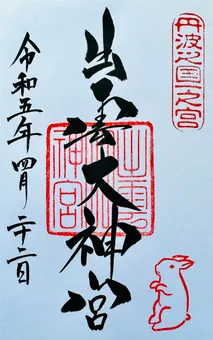 丹波国一之宮
出雲大神宮
出雲
神宮
令和五年四月二十二日